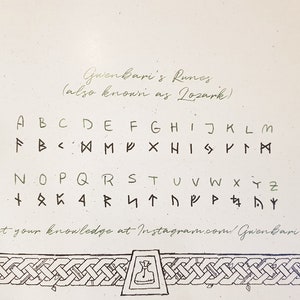 Gwenbari's Runes
(also known as Lozark)
A B C D E F G H I J K L M
ᚨ ᛒ ᚲ ᛞ ᛖ ᚠ ᚷ ᚺ ᛁ ᛃ ᚴ ᛚ ᛗ
N O P Q R S T U V W X Y Z
ᛟ ᛋ ᛏ ᚢ ᚹ
your knowledge at Instagram.com/Gwenbari